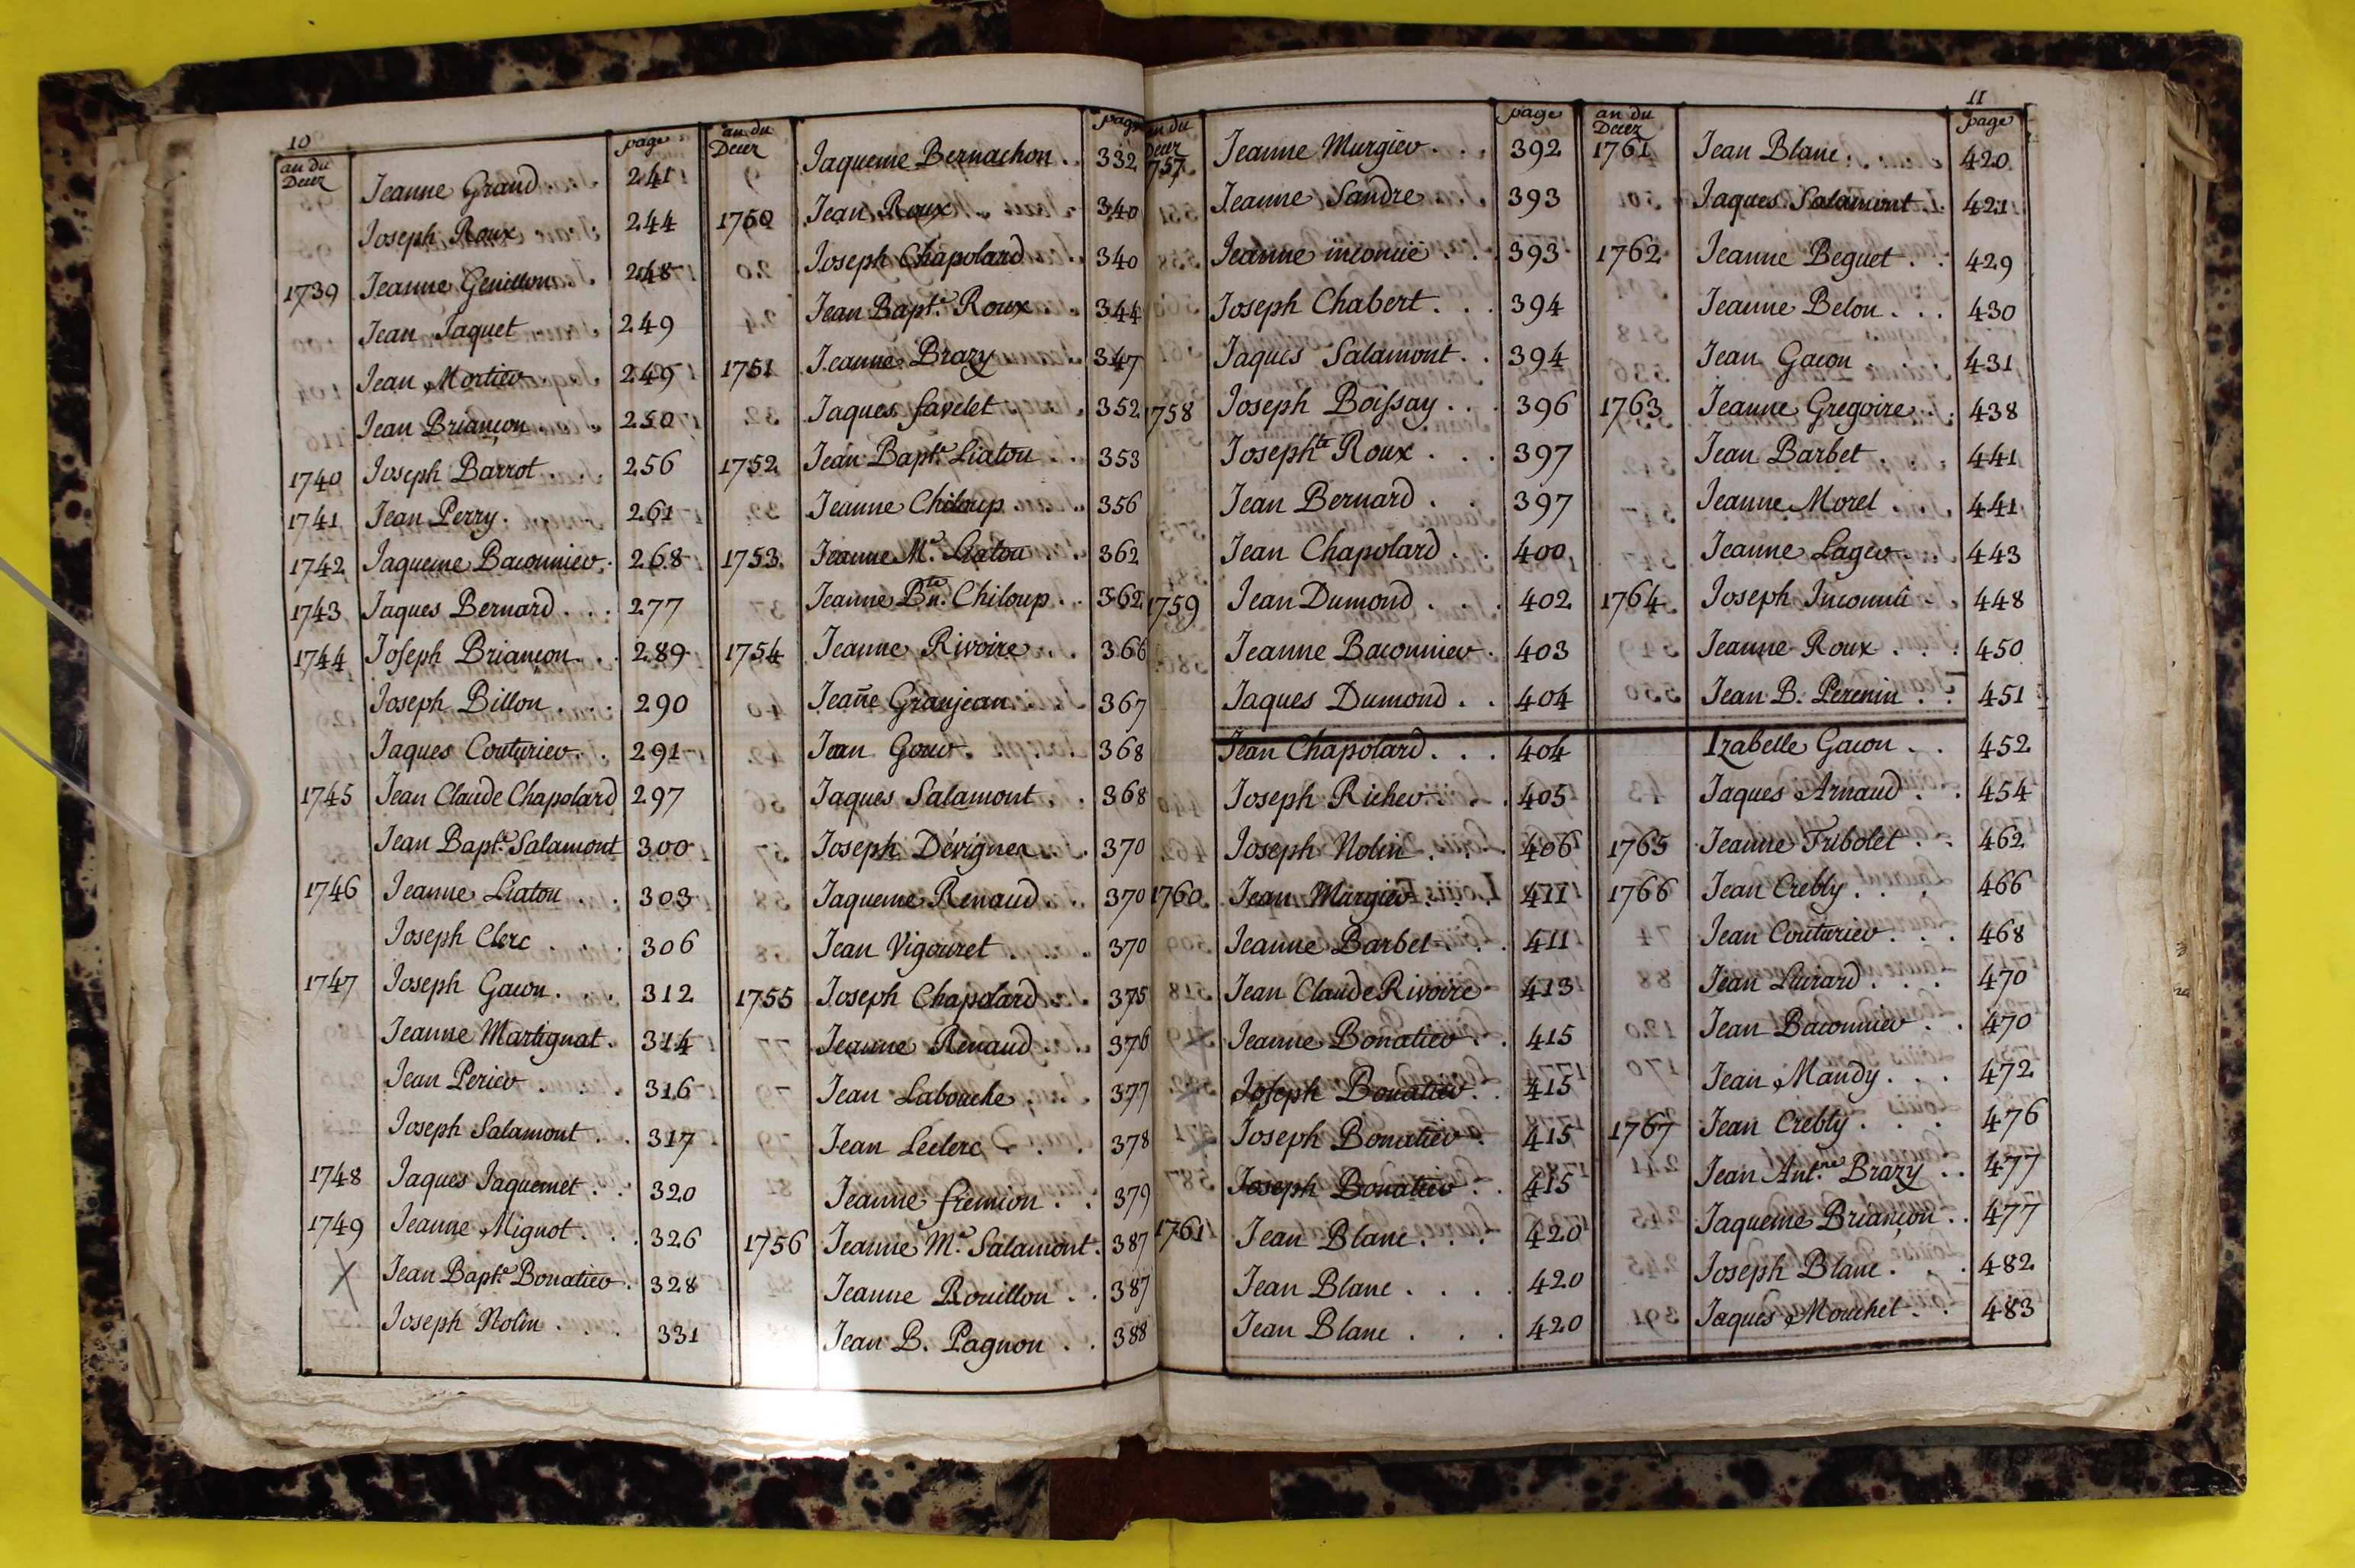 10
an du Decez page
Jeanne Grand 241
Joseph Roux 244
1739 Jeanne Genillon 248
Jean Jaquet 249
Jean Mortier 249
Jean Briançon 250
1740 Joseph Barrot 256
1741 Jean Perry 261
1742 Jaqueme Baconnier 268
1743 Jaques Bernard 277
1744 Joseph Briançon 289
Joseph Billon 290
Jaques Couturier 291
1745 Jean Claude Chapolard 297
Jean Bapt.e Salamont 300
1746 Jeanne Liatou 303
Joseph Clerc 306
1747 Joseph Gacon 312
Jeanne Martignat 314
Jean Perier 316
Joseph Salamont 317
1748 Jaques Jaquemet 320
1749 Jeanne Mignot 326
X Jean Bapt.e Bonatier 328
Joseph Nolin 331
an du Decez page
Jaqueme Bernachon 332
1750 Jean Roux 340
Joseph Chapolard 340
Jean Bapt.e Roux 344
1751 Jeanne Brazy 347
Jaques favelet 352
1752 Jean Bapt.e Liatou 353
Jeanne Chiloup 356
1753 Jeanne M.e Liatou 362
Jeanne B.te Chiloup 362
1754 Jeanne Rivoire 366
Jeañe Granjean 367
Jean Gour 368
Jaques Salamont 368
Joseph Dévignes 370
Jaqueme Renaud 370
Jean Vigouret 370
1755 Joseph Chapolard 375
Jeanne Renaud 376
Jean Labouche 377
Jean Leclerc 378
Jeanne fremion 379
1756 Jeanne M.e Salamont 387
Jeanne Rouillon 387
Jean B. Pagnon 388
an du Decez page
1757 Jeanne Murgier 392
Jeanne Sandre 393
Jeanne inconüe 393
Joseph Chabert 394
Jaques Salamont 394
1758 Joseph Boissay 396
Joseph.te Roux 397
Jean Bernard 397
Jean Chapolard 400
1759 Jean Dumond 402
Jeanne Baconnier 403
Jaques Dumond 404
Jean Chapolard 404
Joseph Richer 405
Joseph Nolin 406
1760 Jean Murgier 411
Jeanne Barbet 411
Jean Claude Rivoire 413
Jeanne Bonatier 415
Joseph Bonatier 415
Joseph Bonatier 415
Joseph Bonatier 415
1761 Jean Blanc 420
Jean Blanc 420
Jean Blanc 420
11
an du Decez page
1761 Jean Blanc 420
Jaques Salamont 421
1762 Jeanne Beguet 429
Jeanne Belon 430
Jean Gacon 431
1763 Jeanne Gregoire 438
Jean Barbet 441
Jeanne Morel 441
Jeanne Lager 443
1764 Joseph Inconnû 448
Jeanne Roux 450
Jean B. Perenin 451
Izabelle Gacon 452
Jaques Arnaud 454
1765 Jeanne Tribolet 462
1766 Jean Crebly 466
Jean Couturier 468
Jean Luirard 470
Jean Baconnier 470
Jean Mandy 472
1767 Jean Crebly 476
Jean Ant.ne Brazy 477
Jaqueme Briançon 477
Joseph Blanc 482
Jaques Mouchet 483